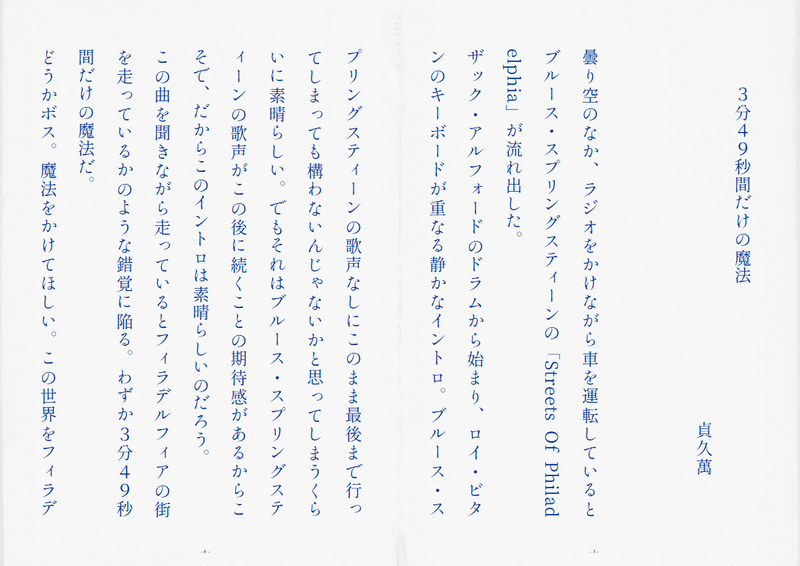 3分49秒間だけの魔法
貞久萬
曇り空のなか、ラジオをかけながら車を運転していると
ブルース・スプリングスティーンの「Streets Of Philad
elphia」が流れ出した。
ザック・アルフォードのドラムから始まり、ロイ・ビタ
ンのキーボードが重なる静かなイントロ。ブルース・ス
- 3 -
プリングスティーンの歌声なしにこのまま最後まで行っ
てしまっても構わないんじゃないかと思ってしまうくら
いに素晴らしい。でもそれはブルース・スプリングステ
ィーンの歌声がこの後に続くことの期待感があるからこ
そで、だからこのイントロは素晴らしいのだろう。
この曲を聞きながら走っているとフィラデルフィアの街
を走っているかのような錯覚に陥る。わずか3分49秒
間だけの魔法だ。
どうかボス。魔法をかけてほしい。この世界をフィラデ
- 4 -